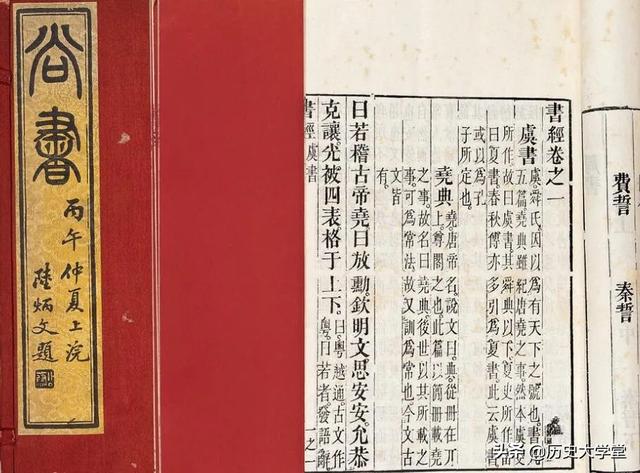 尚書
丙午仲夏上浣
陸炳文題
費誓
秦誓
書經卷之一
虞書
虞舜氏因以為有天下之號也書凡
五篇堯典雖紀唐堯之事然本虞史
所作故曰虞書其舜典以下夏史所作當
曰夏書春秋傳亦多引為夏書此云虞書
或以為孔
子所定也
堯典
堯唐帝名說文曰典從冊在丌
上尊閣之也此篇以簡冊載堯
之事故名曰堯典後世以其所載之
事可為常法故又訓為常也今文古
文皆
有
曰若稽古帝堯曰放勳欽明文思安安允恭
克讓光被四表格于上下
曰粵越通古文作
粵曰若者發語辭
書經 虞書 一之一
头条 @历史大学堂